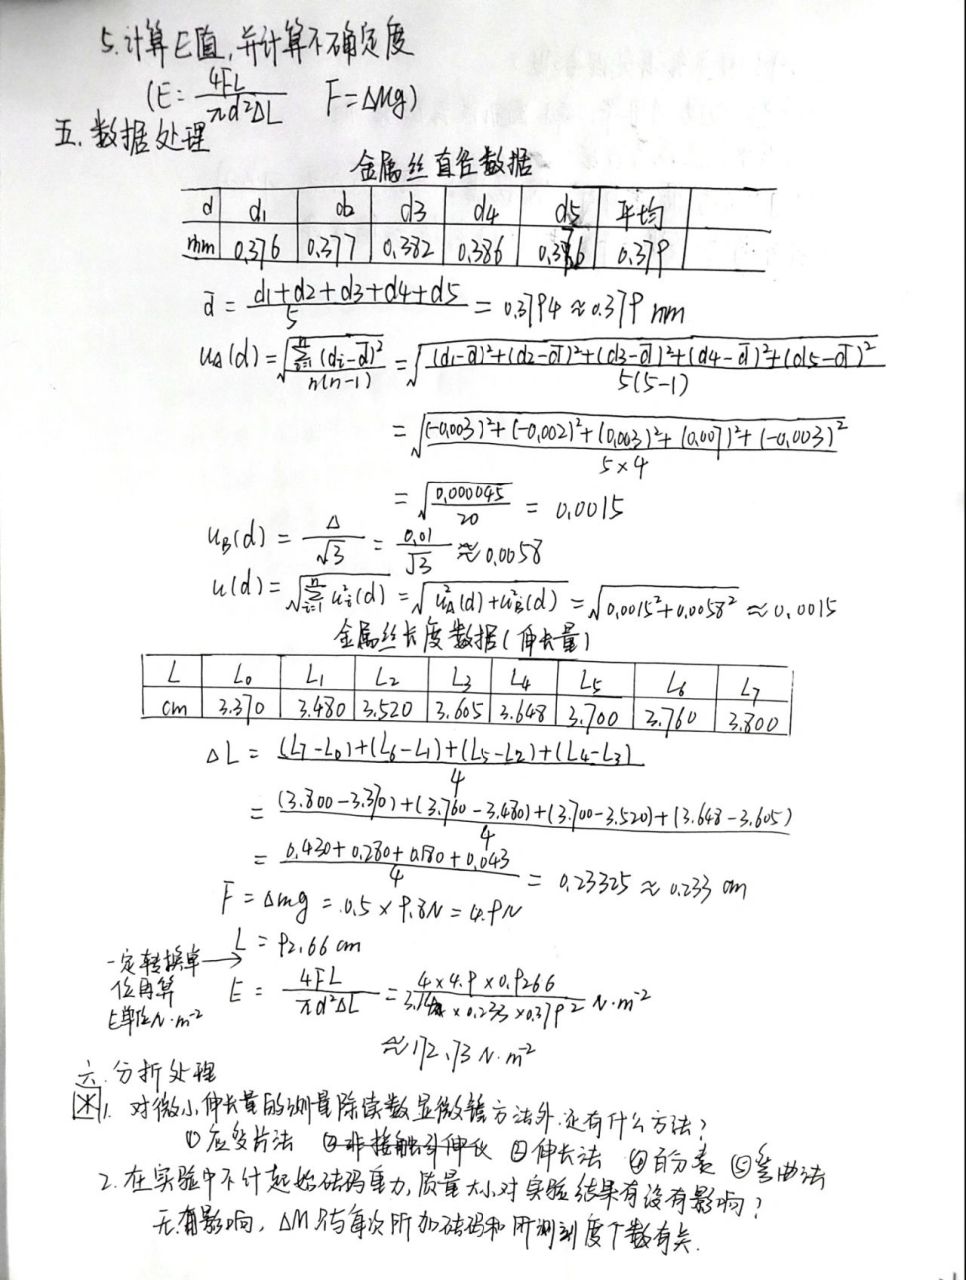 5.计算E值,并计算不确定度
(E= 4FL/πd²ΔL F=ΔMg)
五.数据处理
金属丝直径数据
d d1 d2 d3 d4 d5 平均
mm 0.376 0.377 0.382 0.386 0.379
d̄ = (d1+d2+d3+d4+d5)/5 = 0.3794≈0.379 mm
uA(d)=√(Σ(i=1→n)(di-d̄)²/n(n-1)) =√((d1-d̄)²+(d2-d̄)²+(d3-d̄)²+(d4-d̄)²+(d5-d̄)²/5(5-1))
=√((-0.003)²+(-0.002)²+(0.003)²+(0.007)²+(-0.003)²/5×4)
=√(0.000045/20) = 0.0015
uB(d) = Δ/√3 = 0.01/√3 ≈0.0058
u(d)=√(Σ(i=1→n)ui²(d)) =√(uA²(d)+uB²(d)) =√(0.0015²+0.0058²) ≈0.0015
金属丝长度数据(伸长量)
L L0 L1 L2 L3 L4 L5 L6 L7
cm 3.370 3.480 3.520 3.605 3.648 3.700 3.760 3.800
ΔL = (L7-L0)+(L6-L1)+(L5-L2)+(L4-L3)/4
= (3.800-3.370)+(3.760-3.480)+(3.700-3.520)+(3.648-3.605)/4
= 0.430+0.280+0.180+0.043/4 = 0.23325≈0.233 cm
F=Δmg=0.5×9.8N=4.9N
L=92.66cm
一定转换单
位再算
E单位N·m⁻²
E= 4FL/πd²ΔL = 4×4.9×0.9266/3.14×0.233×0.379² N·m⁻²
≈172.73 N·m⁻²
六.分析处理
※1.对微小伸长量的测量除读数显微镜方法外,还有什么方法?
①应变片法 ②非接触引伸仪 ②伸长法 ④百分表 ⑤弯曲法
2.在实验中不计起始砝码重力,质量大小对实验结果有没有影响?
无影响,ΔM只与每次所加砝码和所测刻度个数有关.